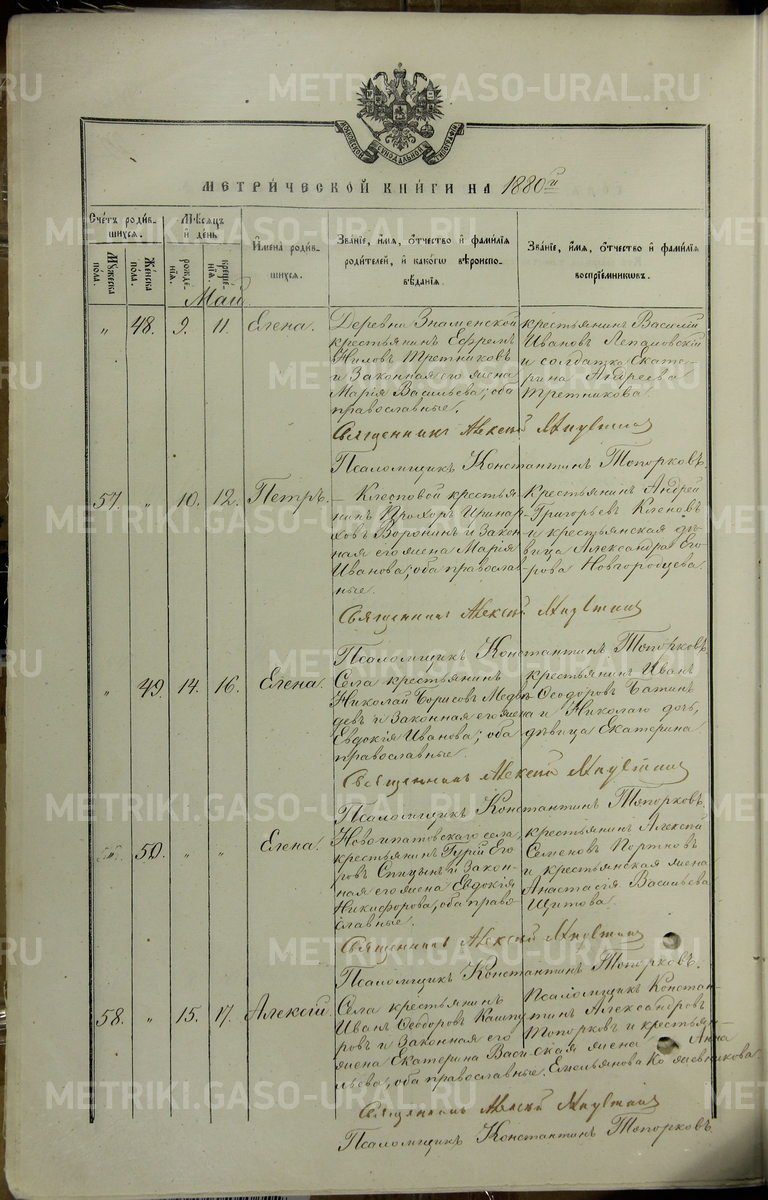 METRIKI.GASO-URAL.RU
МОСКОВСКОЙ СѴНОДАЛЬНОЙ ТИПОГРАФІИ
МЕТРИ́ЧЕСКОЙ КНИ́ГИ НА 1880 й
Сче́тъ роди́в-
шихся.
Мѣ́сяцъ
и҆ де́нь
И҆мена роди́в-
шихся.
Зва́нїе, и҆́мя, ѻ҆́тчество и҆ фами́лїя
роди́телей, и҆ како́гѡ вѣроиспо-
вѣ́данїя.
Зва́нїе, и҆́мя, ѻ҆́тчество и҆ фами́лїя
воспрїе́мникѡвъ.
Мꙋ́жеска
по́ла.
Же́нска
по́ла.
рожде́-
нїѧ.
креще́-
нїѧ
Май
„ 48. 9. 11. Елена.
Деревни Знаменской
крестьянинъ Ефремъ
Ниловъ Третниковъ
и законная его жена
Марія Васильева; оба
православные.
крестьянинъ Василій
Ивановъ
и солдатка Екате-
рина Андреева
Третникова.
Священникъ Алексій
Псаломщикъ Константинъ Топорковъ.
57. „ 10. 12. Петръ.
— Клеповой крестья-
нинъ Прохоръ Иринар-
ховъ Воронинъ и закон-
ная его жена Марія
Иванова; оба православ-
ные.
крестьянинъ Андрей
Григорьевъ Кленовъ
и крестьянская дѣ-
вица Александра Его-
рова Новгородцева.
Священникъ Алексій
Псаломщикъ Константинъ Топорковъ.
„ 49. 14. 16. Елена.
Села крестьянинъ
Николай Борисовъ Медвѣ-
девъ и законная его жена
Евдокія Иванова; оба
православные.
крестьянинъ Иванъ
Ѳеодоровъ Батинъ
и Николаго дочь,
дѣвица Екатерина
Священникъ Алексій
Псаломщикъ Константинъ Топорковъ.
50. „ „ Елена.
Новоипатовскаго села,
крестьянинъ Гурій Его-
ровъ Спицынъ и закон-
ная его жена Евдокія
Никифорова, оба право-
славные.
крестьянинъ Алексѣй
Семеновъ Портновъ
и крестьянская жена
Анастасія Васильева
Щитова.
Священникъ Алексій
Псаломщикъ Константинъ Топорковъ.
58. „ 15. 17. Алексій.
Села крестьянинъ
Иванъ Ѳеодоровъ
ровъ и законная его
жена Екатерина Васи-
льева, оба православные.
Псаломщикъ Констан-
тинъ Александровъ
Топорковъ и крестьян-
ская жена Анна
Емельянова Кожевникова.
Священникъ Алексій
Псаломщикъ Константинъ Топорковъ